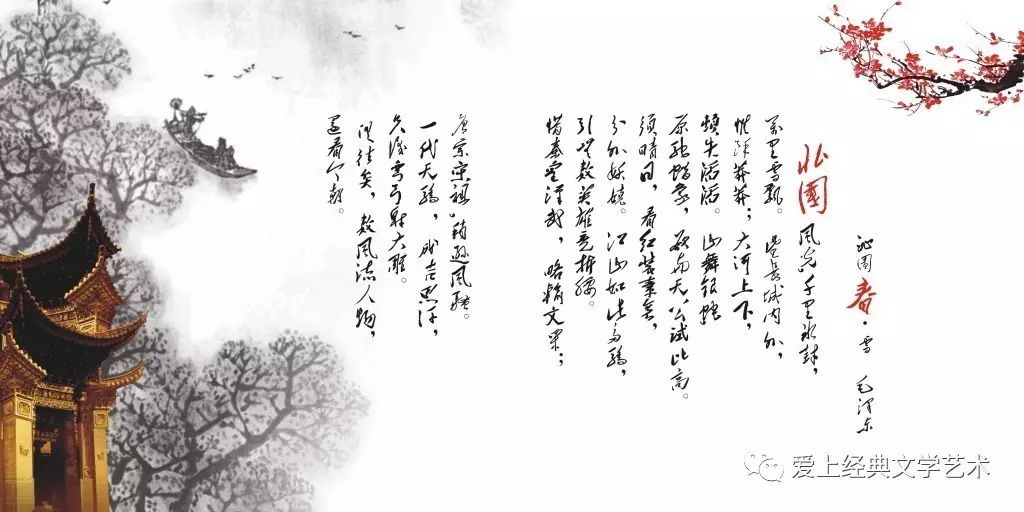 沁園春·雪 毛泽东
北國風光,千里冰封,
万里雪飘。望长城内外,
惟馀莽莽;大河上下,
顿失滔滔。山舞银蛇
原驰蜡象,欲与天公试比高。
须晴日,看红装素裹,
分外妖娆。江山如此多骄,
引无数英雄竞折腰。
惜秦皇汉武,略输文采;
唐宗宋祖,稍逊风骚。
一代天骄,成吉思汗,
只识弯弓射大雕。
俱往矣,数风流人物,
还看今朝。
爱上经典文学艺术